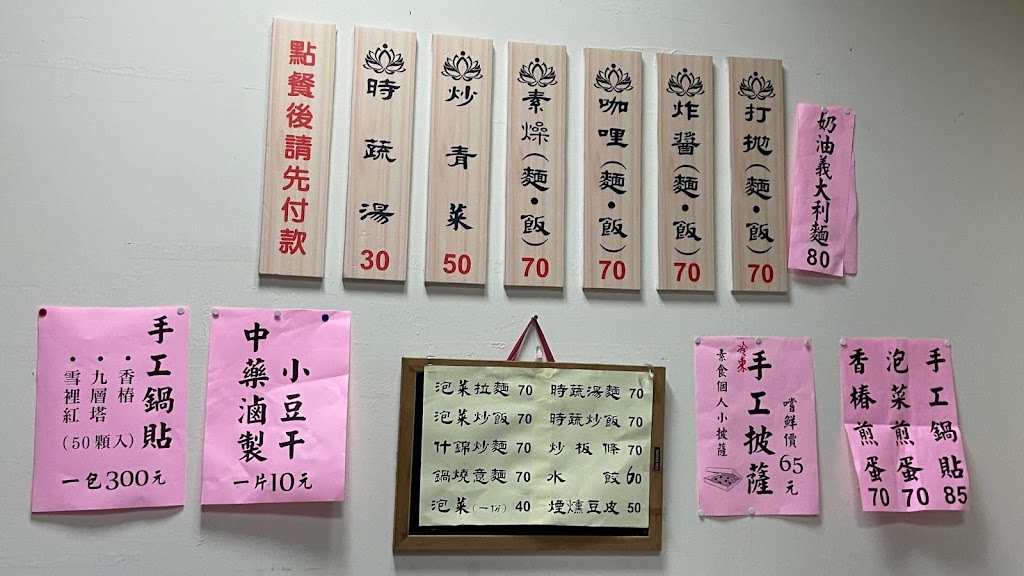 點餐後請先付款
時蔬湯 30
炒青菜 50
素燥(麵•飯) 70
咖哩(麵•飯) 70
炸醬(麵•飯) 70
打拋(麵•飯) 70
奶油義大利麵 80
手工鍋貼
•香椿
•九層塔
•雪裡紅
(50顆入)
一包300元
小豆干
中藥滷製
一片10元
泡菜拉麵 70
泡菜炒飯 70
什錦炒麵 70
鍋燒意麵 70
泡菜(一份) 40
時蔬湯麵 70
時蔬炒飯 70
炒粄條 70
水餃 60
煙燻豆皮 50
嚐鮮價65元
手工披薩
冷凍
素食個人小披薩
手工鍋貼 85
泡菜煎蛋 70
香椿煎蛋 70